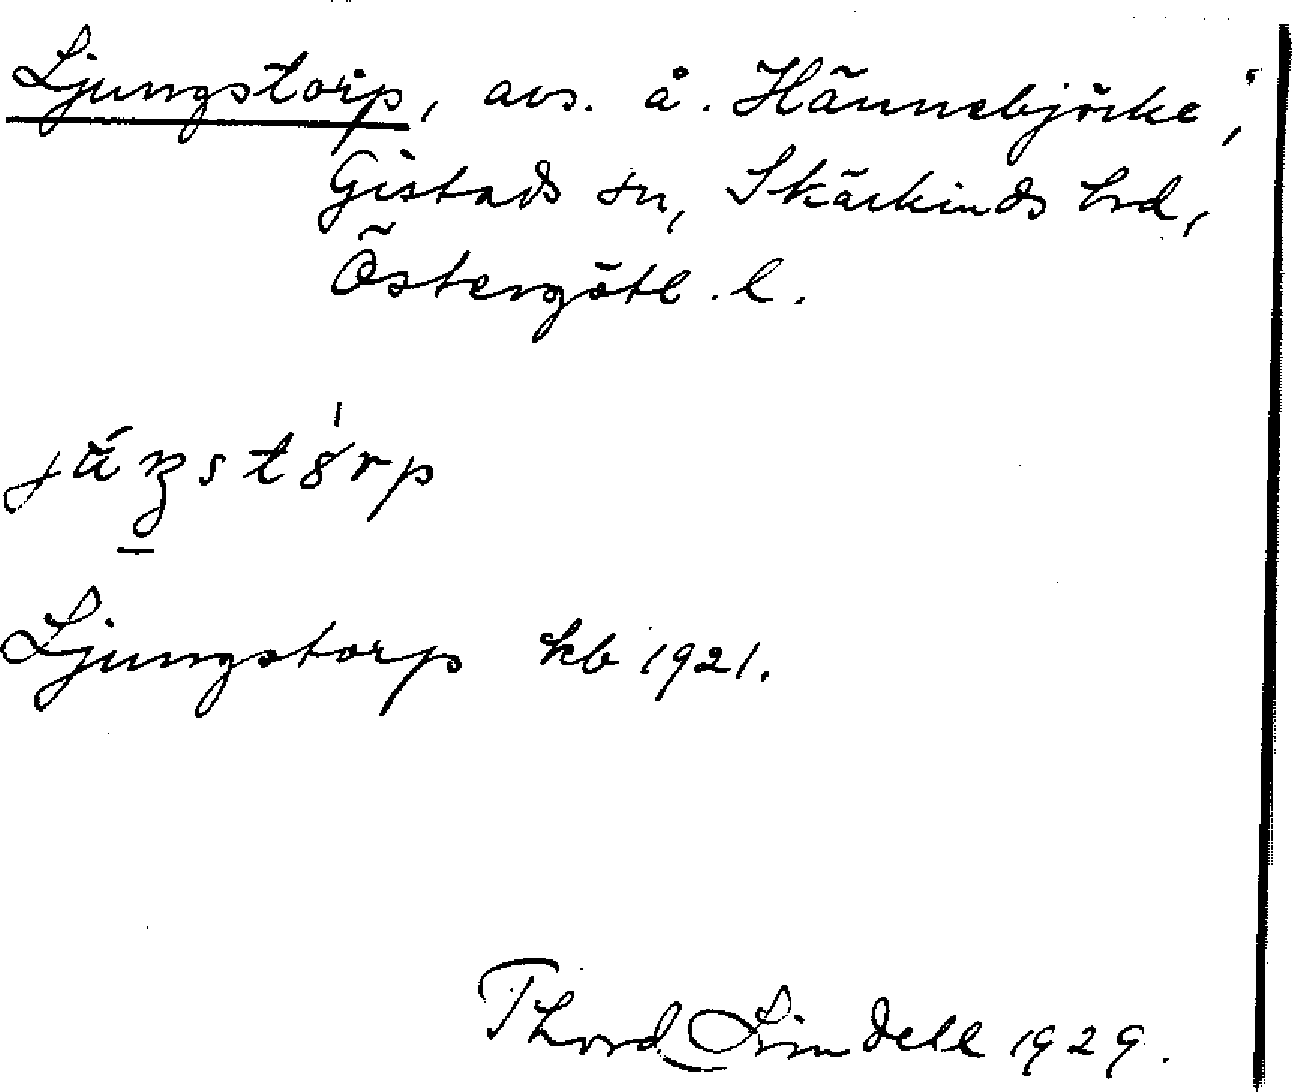 Ljungstorp, avs. å. Hännebjörke,
Gistads sn, Skärkinds hrd,
Östergötl. l.
Ljungstorp kb 1921.
Thord Lindell 1929.